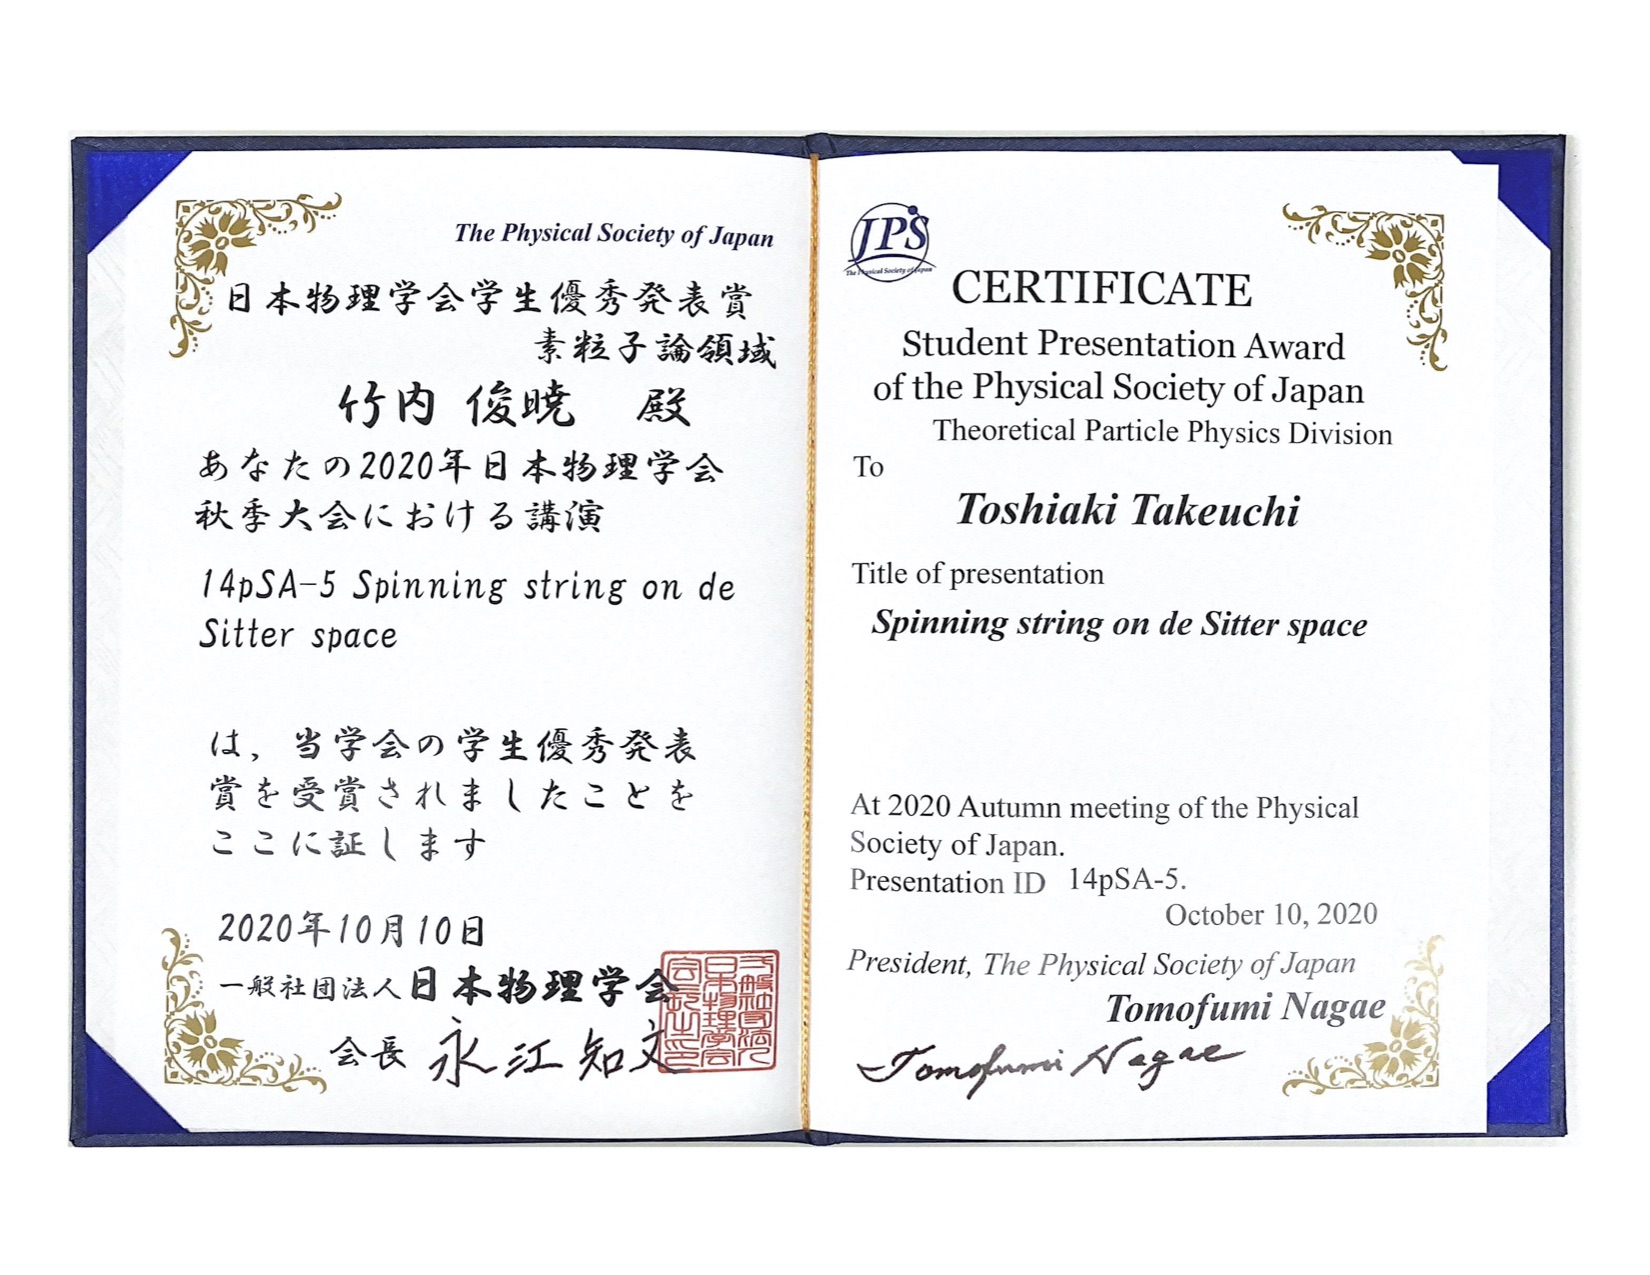 The Physical Society of Japan
日本物理学会学生優秀発表賞
素粒子論領域
竹内 俊暁 殿
あなたの2020年日本物理学会
秋季大会における講演
14pSA-5 Spinning string on de
Sitter space
は，当学会の学生優秀発表
賞を受賞されましたことを
ここに証します
2020年10月10日
一般社団法人日本物理学会
会長 永江知文
JPS
The Physical Society of Japan
CERTIFICATE
Student Presentation Award
of the Physical Society of Japan
Theoretical Particle Physics Division
To
Toshiaki Takeuchi
Title of presentation
Spinning string on de Sitter space
At 2020 Autumn meeting of the Physical
Society of Japan.
Presentation ID 14pSA-5.
October 10, 2020
President, The Physical Society of Japan
Tomofumi Nagae
Tomofumi Nagae